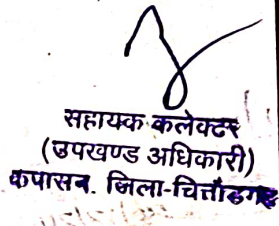 सहायक कलेक्टर
(उपखण्ड अधिकारी)
कपासन. जिला-चित्तौडगढ